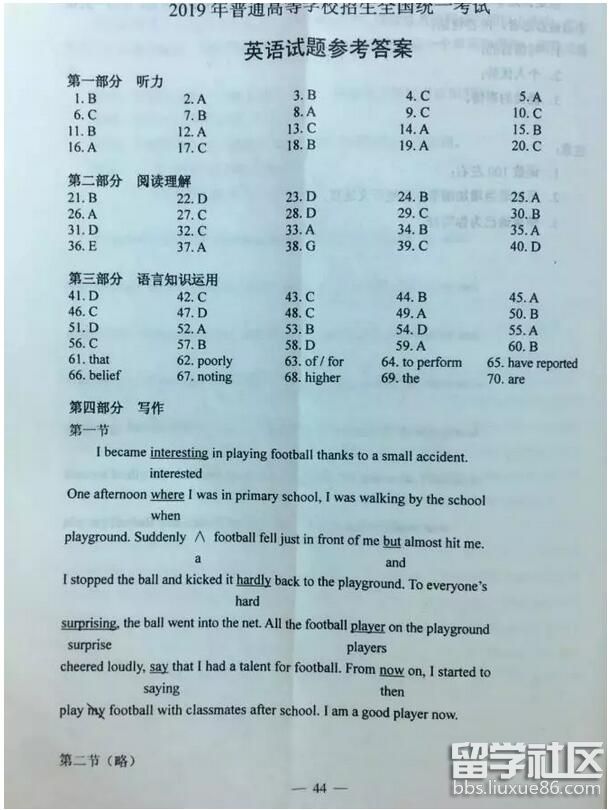 2019年普通高等学校招生全国统一考试
英语试题参考答案
第一部分 听力
1. B 2. A 3. B 4. C 5. A
6. C 7. B 8. A 9. C 10. C
11. B 12. A 13. C 14. A 15. B
16. A 17. C 18. B 19. A 20. C
第二部分 阅读理解
21. B 22. D 23. D 24. B 25. B
26. A 27. C 28. D 29. C 30. B
31. D 32. C 33. A 34. B 35. A
36. E 37. A 38. G 39. C 40. D
第三部分 语言知识运用
41. D 42. C 43. C 44. B 45. A
46. C 47. D 48. C 49. A 50. B
51. D 52. A 53. B 54. D 55. A
56. C 57. B 58. D 59. A 60. B
61. that 62. poorly 63. of / for 64. to perform 65. have reported
66. belief 67. noting 68. higher 69. the 70. are
第四部分 写作
第一节
I became interesting in playing football thanks to a small accident.
interested
One afternoon where I was in primary school, I was walking by the school
when
playground. Suddenly ∧ football fell just in front of me but almost hit me.
a and
I stopped the ball and kicked it hardly back to the playground. To everyone's
hard
surprising, the ball went into the net. All the football player on the playground
surprise players
cheered loudly, say that I had a talent for football. From now on, I started to
saying then
play my football with classmates after school. I am a good player now.
第二节（略）
— 44 —
留学社区
bbs.liuxue86.com